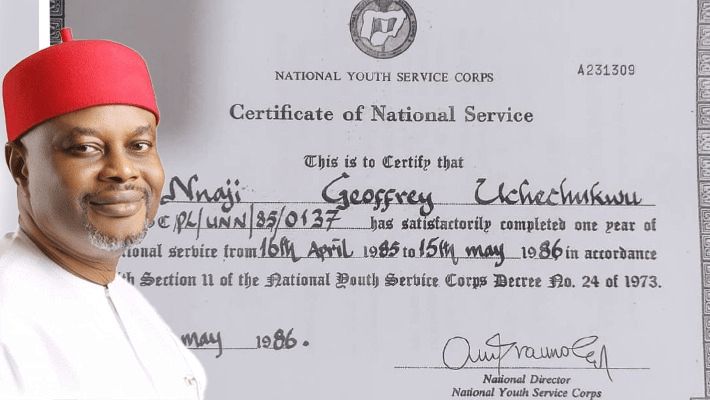 NATIONAL YOUTH SERVICE CORPS
A231309
Certificate of National Service
This is to Certify that
Nnaji Geoffrey Uchechukwu
C/PL/UNN/85/0137 has satisfactorily completed one year of
ional service from 16th April 1985 to 15th may 1986 in accordance
th Section 11 of the National Youth Service Corps Decree No. 24 of 1973.
may 1986.
National Director
National Youth Service Corps